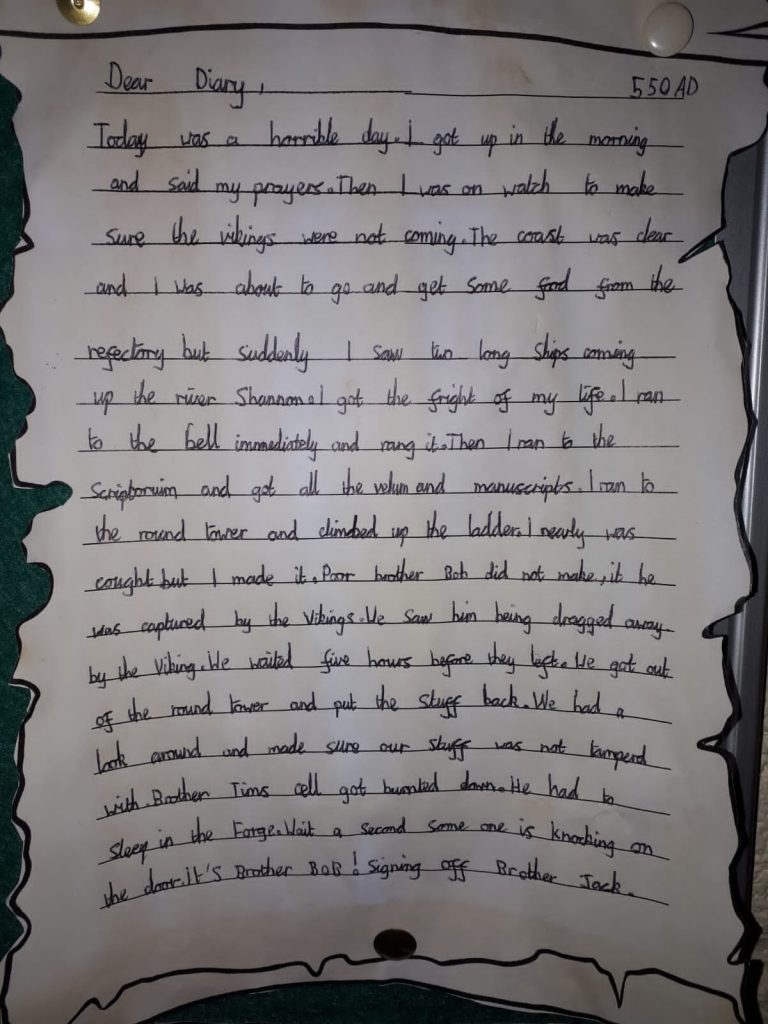 Dear Diary, 550AD
Today was a horrible day. I got up in the morning
and said my prayers. Then I was on watch to make
sure the vikings were not coming. The coast was clear
and I was about to go and get some food from the
refectory but suddenly I saw two long ships coming
up the river Shannon. I got the fright of my life. I ran
to the bell immediately and rang it. Then I ran to the
Scriptorium and got all the velum and manuscripts. I ran to
the round tower and climbed up the ladder. I nearly was
cought but I made it. Poor brother Bob did not make, it he
was captured by the Vikings. We saw him being dragged away
by the Viking. We waited five hours before they left. We got out
of the round tower and put the stuff back. We had a
look around and made sure our stuff was not tamperd
with. Brother Tims cell got burnted down. He had to
sleep in the Forge. Wait a second some one is knocking on
the door. it's Brother BOB! Signing off Brother Jack.